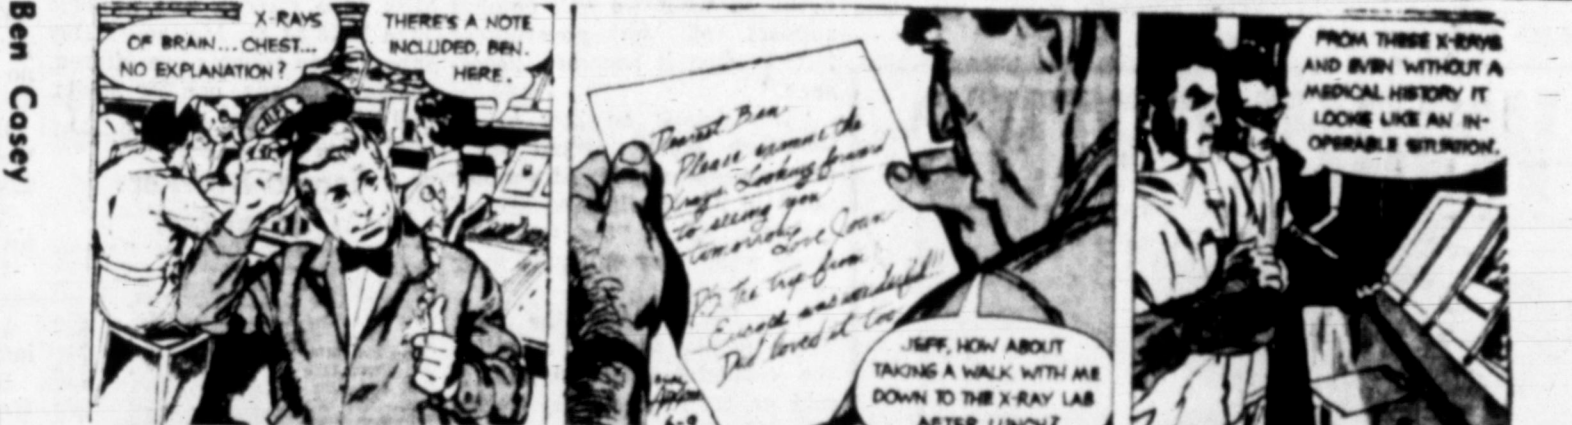 Ben Casey
X-RAYS
OF BRAIN... CHEST...
NO EXPLANATION?
THERE'S A NOTE
INCLUDED, BEN.
HERE.
Dearest Ben
Please examine the
Xrays. Looking forward
to seeing you
tomorrow
Love Joan
PS The trip from
Europe was wonderful!!
Dad loved it too
6-9
JEFF, HOW ABOUT
TAKING A WALK WITH ME
DOWN TO THE X-RAY LAB
AFTER LUNCH?
FROM THESE X-RAYS
AND EVEN WITHOUT A
MEDICAL HISTORY IT
LOOKS LIKE AN IN-
OPERABLE SITUATION.